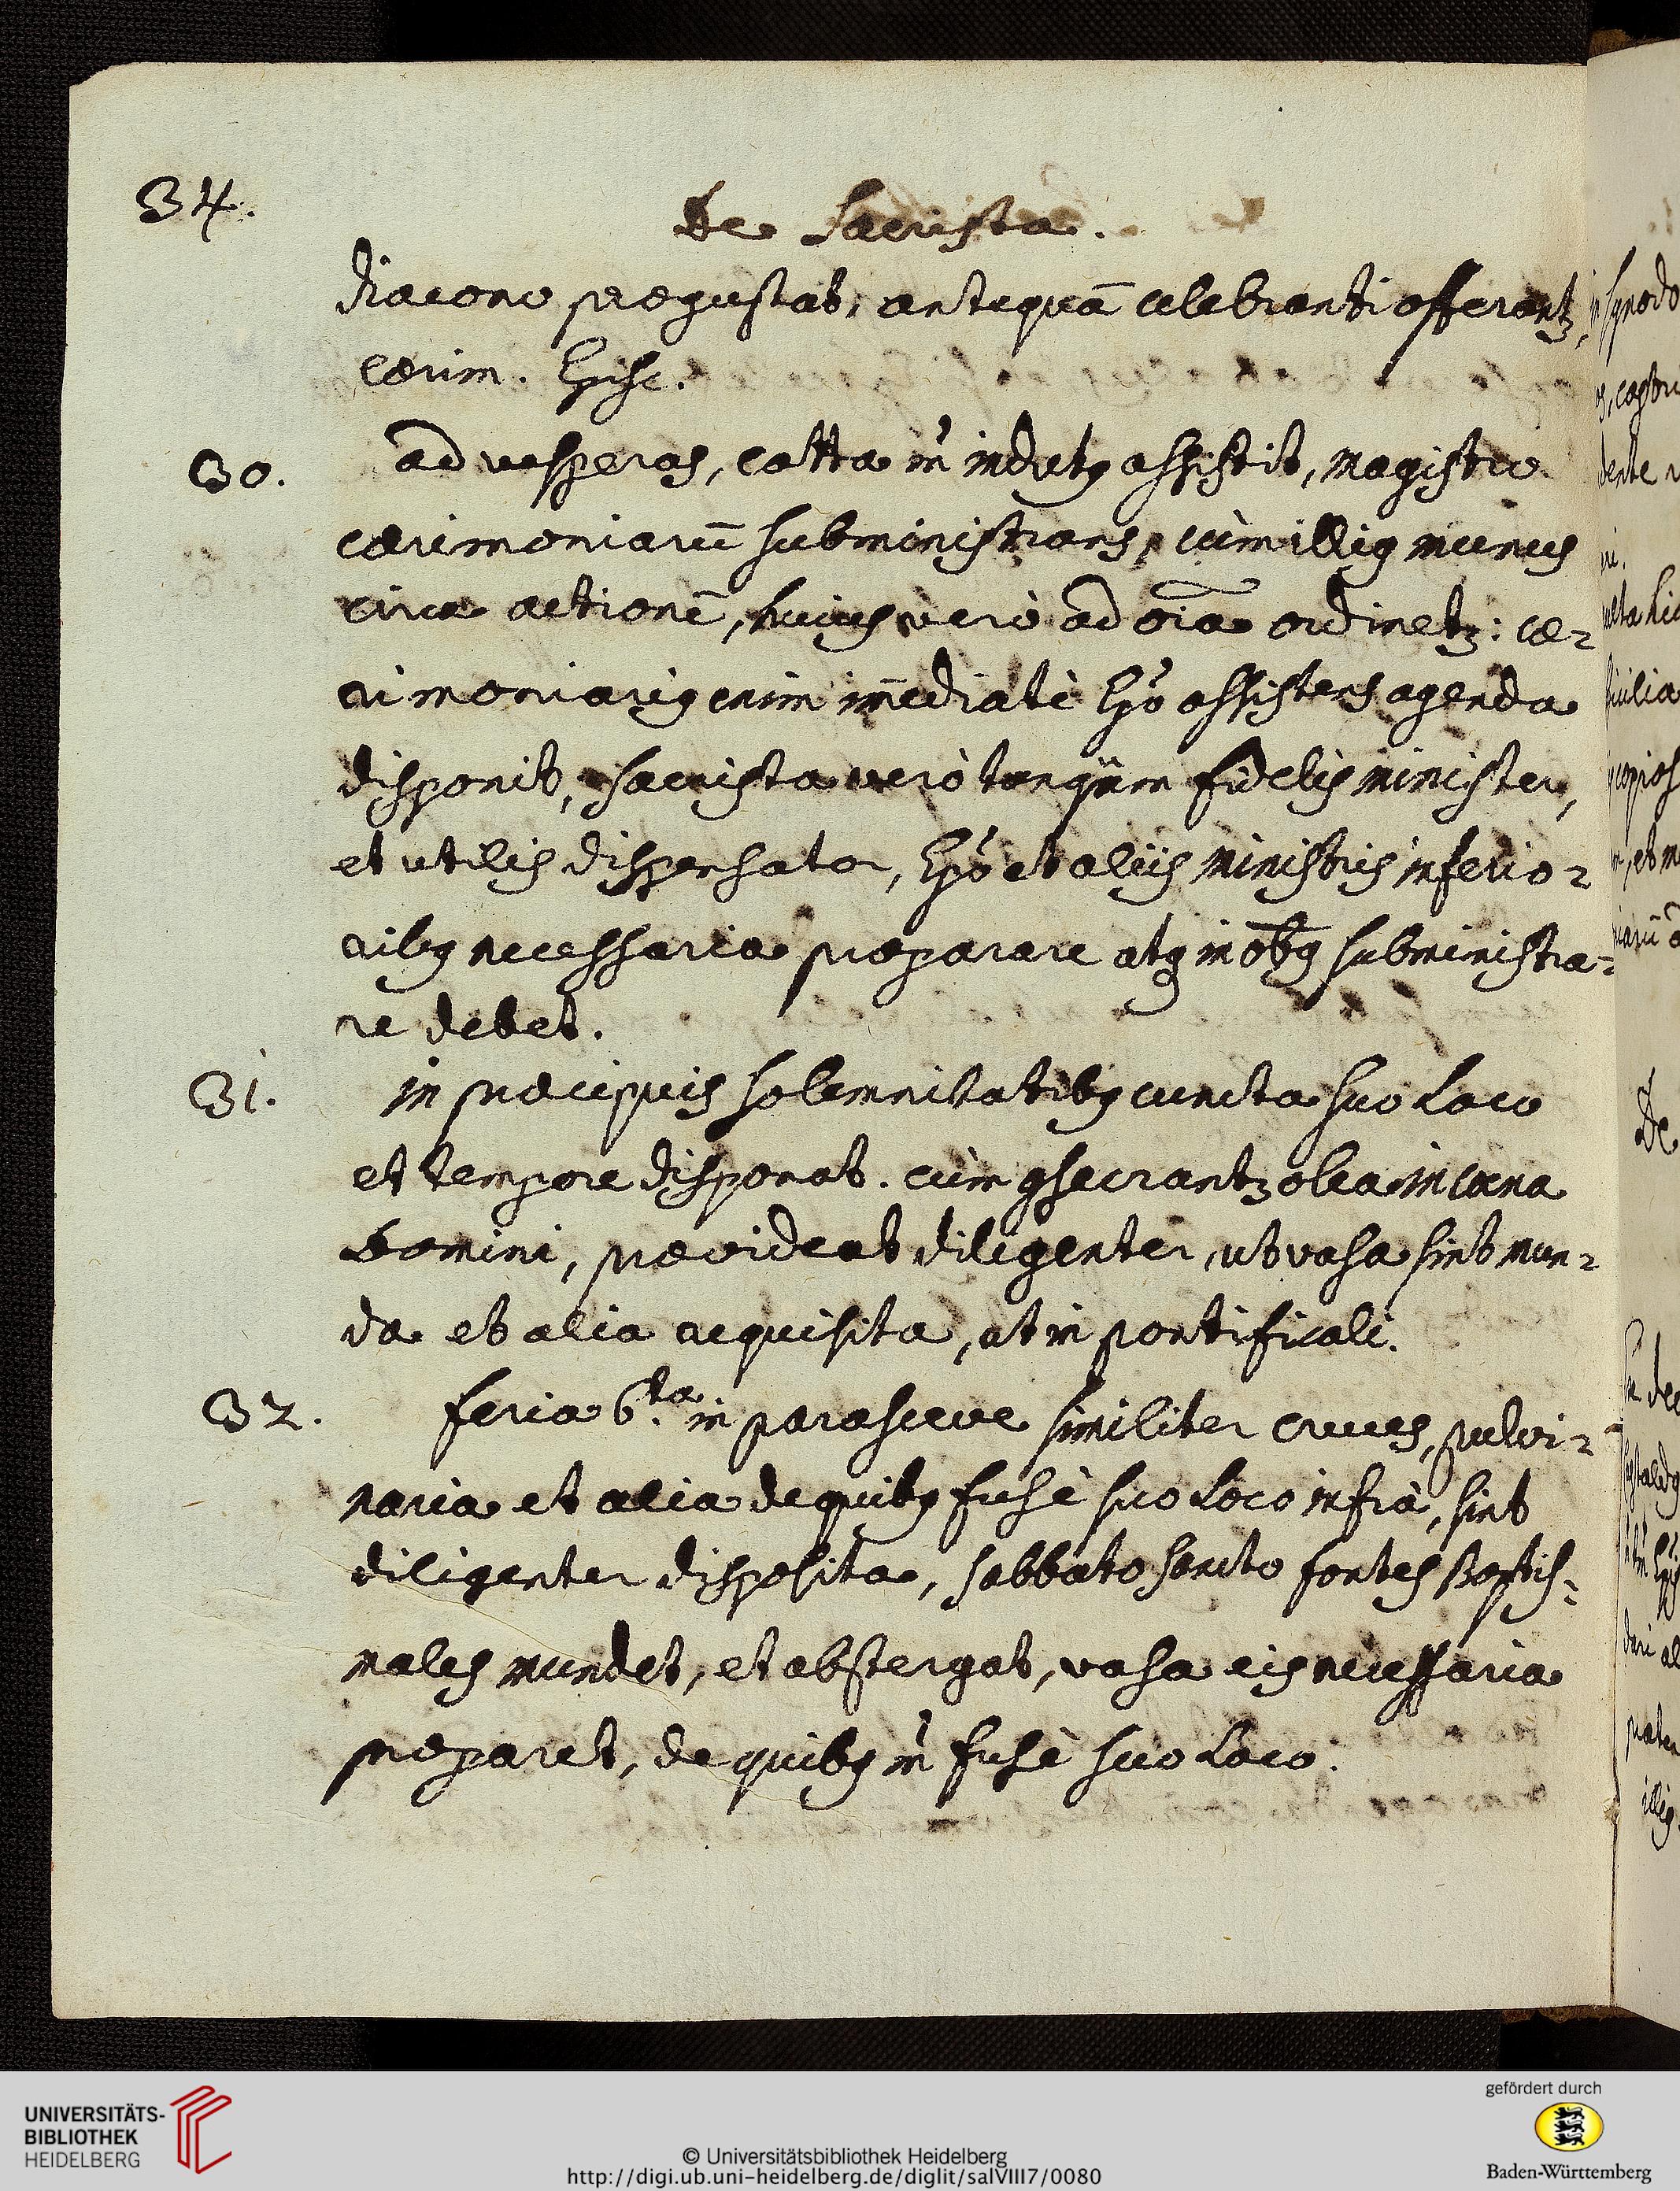 34.
De Sacrista.
diacono prægustat, antequã celebranti offerantz,
cærim. Episc.
30. ad vesperas, cotta tñ indutq assistit, magistro
cærimoniarũ subministrans, cùm illiq munus
circa actionẽ, huius verò ad oĩa ordinetz: cæ-
rimoniariq enim im̃ediatè Epõ assistens agenda
disponit, sacrista verò tanqũam fidelis minister,
et utilis dispensator, Epõ et alijs ministris inferio-
ribq necessaria præparare atq in õbq subministra-
re debet.
31. in præcipuis solemnitatibq cuncta suo Loco
et tempore disponat. cùm 9secrantz olea in cæna
Domini, prævideat diligenter, ut vasa sint mun-
da et alia requisita, ut in pontificali.
32. feria 6.ta in parasceve similiter cruces, pulvi-
naria et alia de quibq fusè suo Loco infrà, sint
diligenter disposita, sabbato sancto fontes Baptis-
males mundet, et abstergat, vasa eis necessaria
præparet, de quibq tñ fusè suo Loco.
in synodo
De
UNIVERSITÄTS-
BIBLIOTHEK
HEIDELBERG
© Universitätsbibliothek Heidelberg
http://digi.ub.uni-heidelberg.de/diglit/salVIII7/0080
gefördert durch
Baden-Württemberg